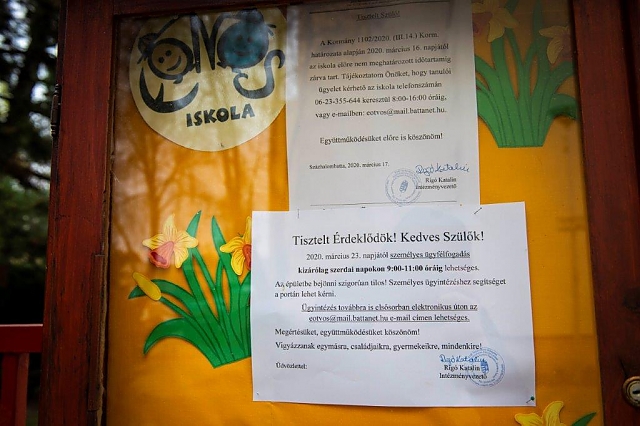 EÖTVÖS
ISKOLA
Tisztelt Szülő!
A Kormány 1102/2020. (III.14.) Korm.
határozata alapján 2020. március 16. napjától
az iskola előre nem meghatározott időtartamig
zárva tart. Tájékoztatom Önöket, hogy tanulói
ügyelet kérhető az iskola telefonszámán
06-23-355-644 keresztül 8:00-16:00 óráig,
vagy e-mailben: eotvos@mail.battanet.hu.
Együttműködésüket előre is köszönöm!
Százhalombatta, 2020. március 17.
Rigó Katalin
Rigó Katalin
Intézményvezető
Tisztelt Érdeklődők! Kedves Szülők!
2020. március 23. napjától személyes ügyfélfogadás
kizárólag szerdai napokon 9:00-11:00 óráig lehetséges.
Az épületbe bejönni szigorúan tilos! Személyes ügyintézéshez segítséget
a portán lehet kérni.
Ügyintézés továbbra is elsősorban elektronikus úton az
eotvos@mail.battanet.hu e-mail címen lehetséges.
Megértésüket, együttműködésüket köszönöm!
Vigyázzanak egymásra, családjaikra, gyermekeikre, mindenkire!
Üdvözlettel:
Rigó Katalin
Rigó Katalin
Intézményvezető